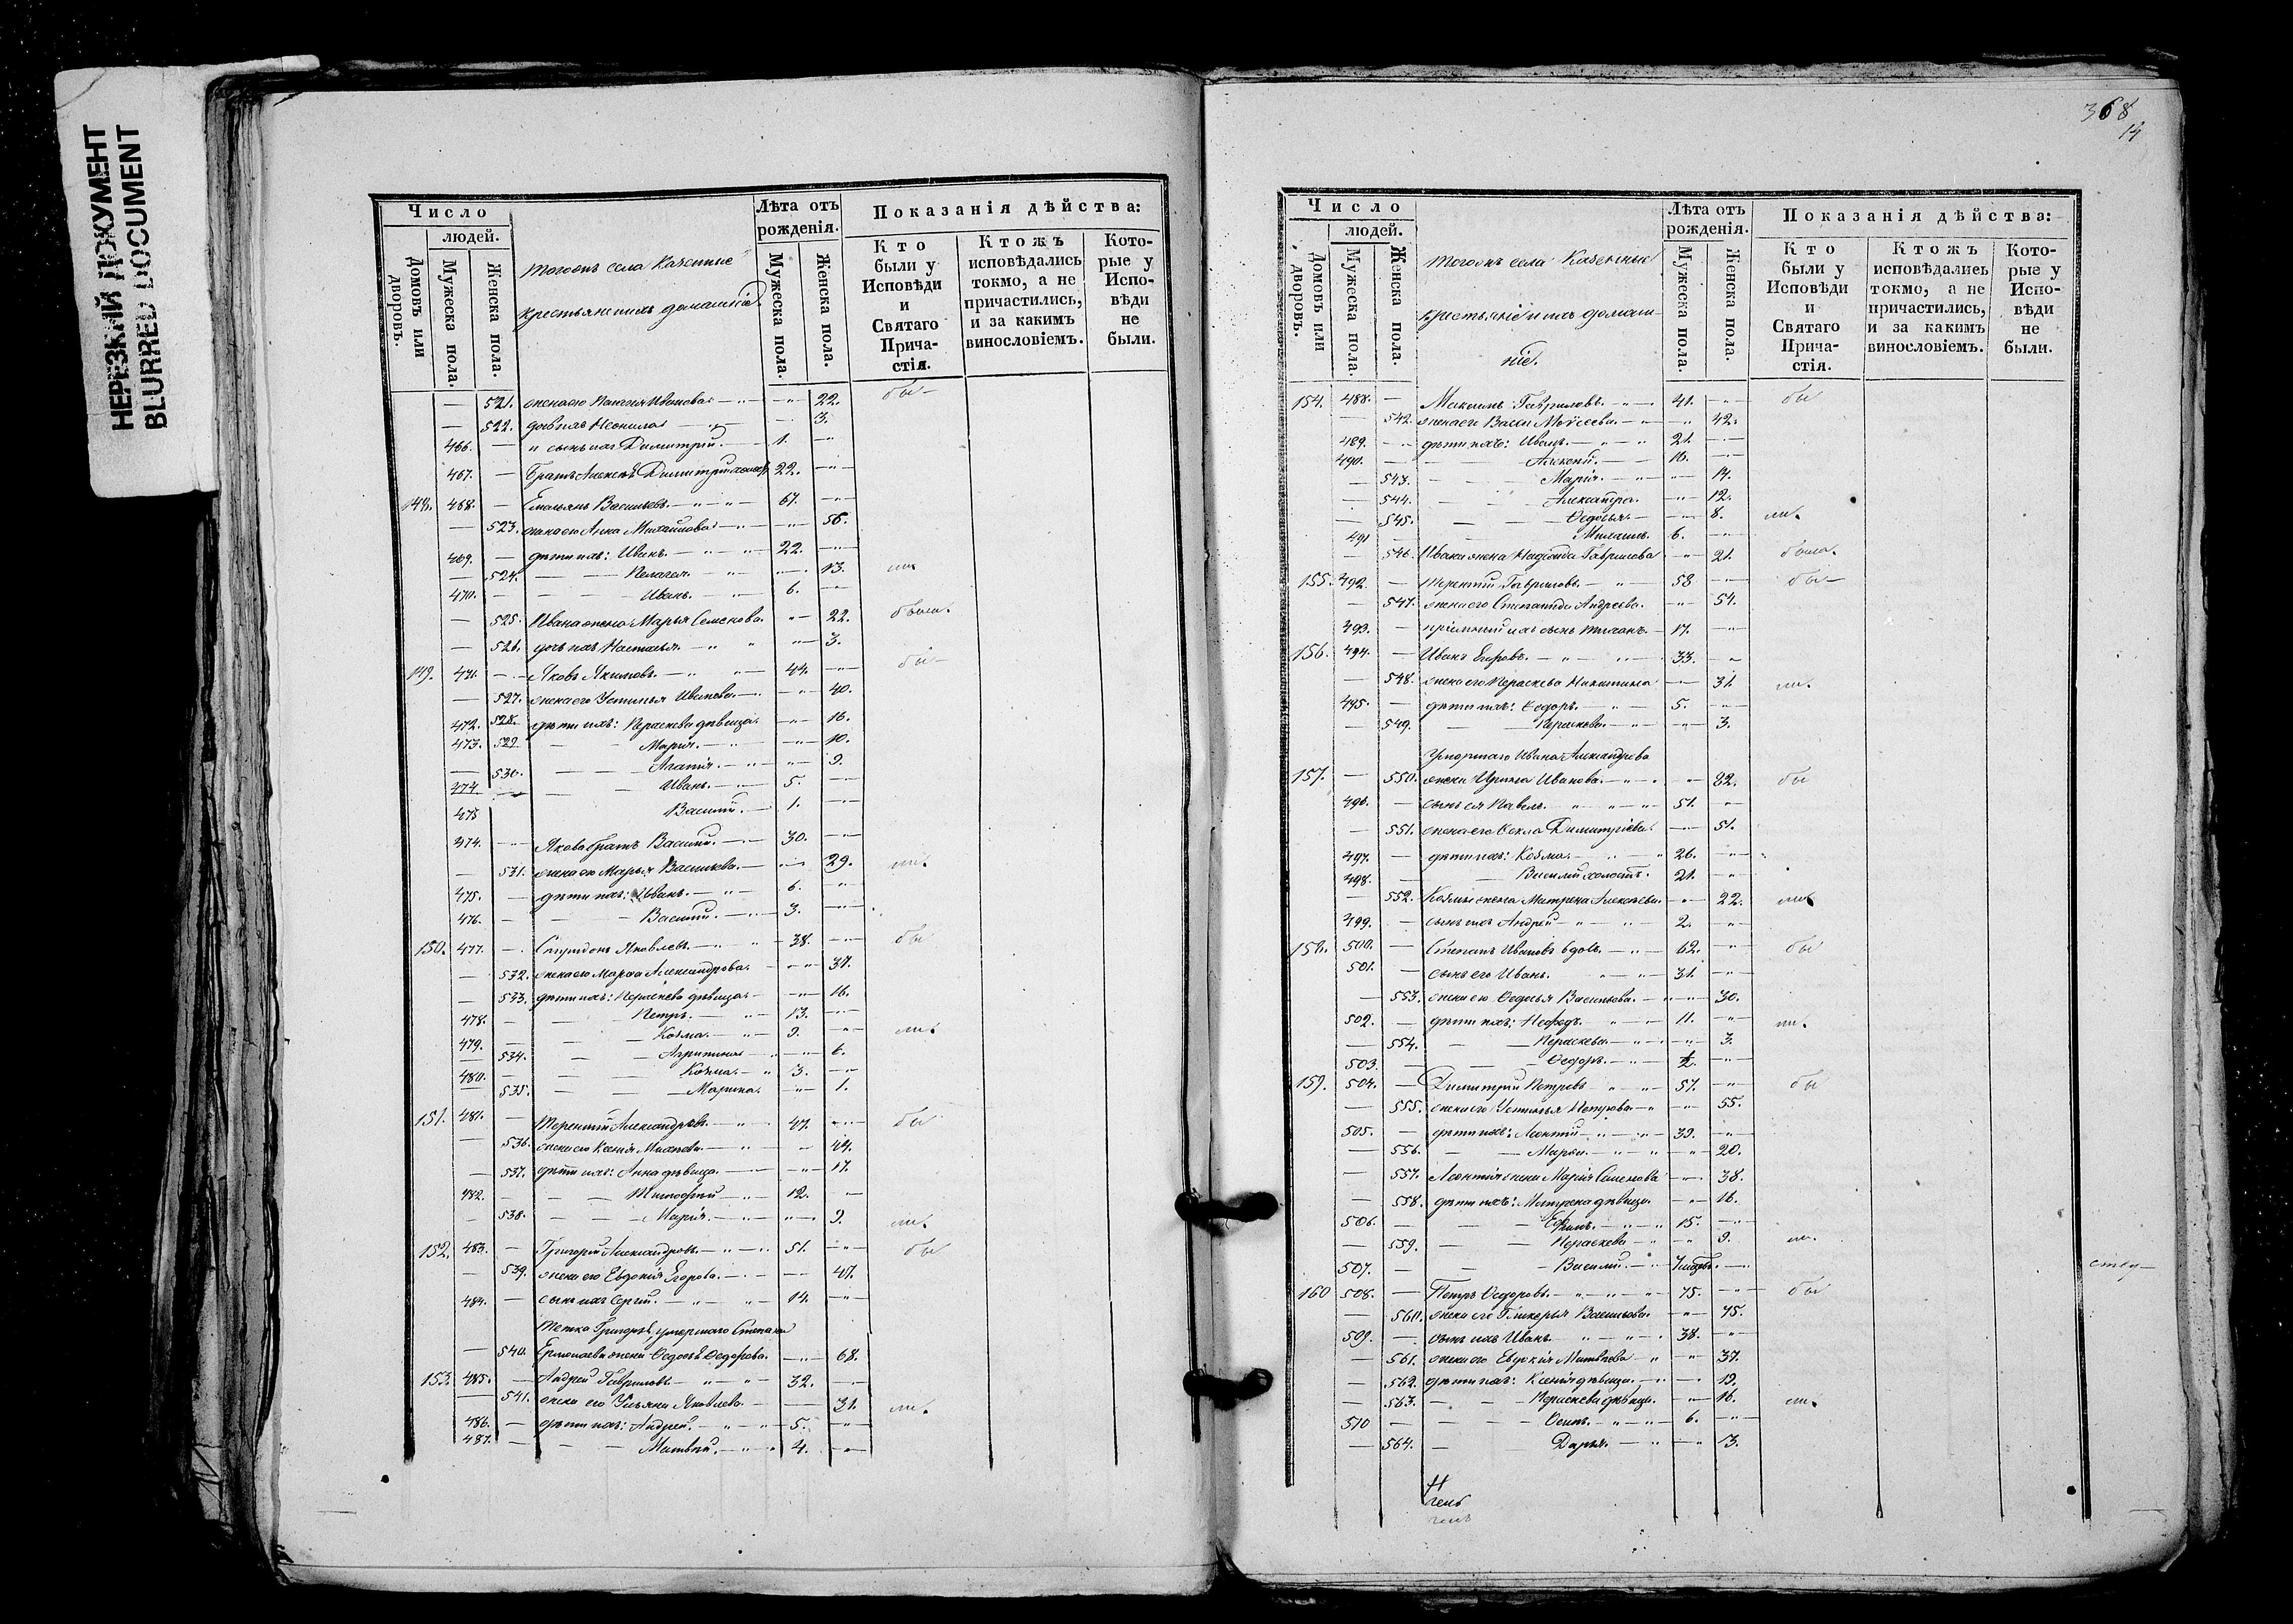 НЕРЕЗКИЙ ДОКУМЕНТ
BLURRED DOCUMENT
Число
людей.
Домовъ или дворовъ.
Мужеска пола.
Женска пола.
тогожъ села Казенные
крестьяне и ихъ домашніе.
Лѣта отъ рожденія.
Мужеска пола.
Женска пола.
Показанія дѣйства:
Кто были у Исповѣди и Святаго Прича-стія.
Ктожъ исповѣдались токмо, а не причастились, и за какимъ винословіемъ.
Кото-рые у Испо-вѣди не были.
— 521. жена его Ивановна — 22. бы
— 522. дочь ихъ Неонила — 3.
466. — и сынъ ихъ Димитрій. 1. —
467. — Братъ Алексѣй Димитрій холост 22. —
148. 468. — Емельянъ Васильевъ. 67. —
— 523. жена его Анна Михайлова — 56.
469. — дѣти ихъ: Иванъ. 22. —
— 524. — Пелагея. — 13. ма
470. — Иванъ. 6. —
— 525. Ивана жена Марья Семенова. — 22. была.
— 526. дочь ихъ Наталья. — 3.
149. 471. — Яковъ Якимовъ. 44. — бы
— 527. жена его Устинья Иванова. — 40.
472. 528. дѣти ихъ: Параскева дѣвица. — 16.
473. 529. — Марія. — 10.
— 530. — Агапія. — 9.
474. — Иванъ. 5. —
475 Василій. 1. —
474. — Якова братъ Василій. 30. —
— 531. жена его Марья Васильева. — 29. ма.
475. — дѣти ихъ: Иванъ. 6. —
476. — Василій. 3. —
150. 477. — Спиридонъ Яковлевъ. 38. — бы
— 532. жена его Марѳа Александрова. — 37.
— 533. дѣти ихъ: Параскева дѣвица. — 16.
478. — Петръ. 13. —
479. — Козма. 9. — ма
— 534. — Агрипина — 6.
480. — Козма. 3. —
— 535. — Марина. — 1.
151. 481. — Терентій Александровъ. 47. — бы
— 536. жена его Ксенія — 44.
— 537. дѣти ихъ: Анна дѣвица. — 17.
482. — Тимофей 12. —
— 538. — Марія. — 9. ма.
152. 483. — Григорій Александровъ. 51. — бы
— 539. жена его Евдокія Егорова. — 47.
484. — сынъ ихъ Сергій. 14. —
Тетка Григорія, умершаго Степана
— 540. Ермолаева жена Ѳедосья Ѳедорова. — 68.
153. 485. — Андрей Гавриловъ 32. —
— 541. жена его Ульяна Яковлева. — 31. ма.
486. — дѣти ихъ: Андрей. 5. —
487. — Матвей. 4. —
368
14
Число
людей.
Домовъ или дворовъ.
Мужеска пола.
Женска пола.
тогожъ села Казенные
крестьяне и ихъ домаш-
ніе.
Лѣта отъ рожденія.
Мужеска пола.
Женска пола.
Показанія дѣйства:
Кто были у Исповѣди и Святаго Прича-стія.
Ктожъ исповѣдались токмо, а не причастились, и за какимъ винословіемъ.
Кото-рые у Испо-вѣди не были.
154. 488. — Максимъ Гавриловъ. 41. — бы
— 542. жена его Васса Моисеева. — 42.
489. — дѣти ихъ: Иванъ. 21. —
490. — Алексій. 16. —
— 543. — Марія. — 14.
— 544. — Александра. — 12.
— 545. — Ѳедосья. — 8. ма.
491 — 6. —
— 546. Ивана жена Надежда Гаврилова — 21. была.
155. 492. — Терентій Гавриловъ. 58 — бы
— 547. жена его Степанида Андреева. — 54.
493. — пріемный ихъ сынъ Тихонъ. 17. —
156. 494. — Иванъ Егоровъ. 33. —
— 548. жена его Параскева Никитина — 31. ма.
495. — дѣти ихъ: Ѳедоръ. 5. —
— 549. — Параскева. — 3.
Умершаго Ивана Александрова
157. — 550. жена Ирина Иванова. — 82. бы
496. — сынъ ея Павелъ. 51. —
— 551. жена его Ѳекла Димитріева. — 51.
497. — дѣти ихъ: Козма. 26. —
498. — Василій холостъ. 21. —
— 552. Козмы жена Матрена Алексѣева. — 22. ма
499. — сынъ ихъ Андрей 2. —
158. 500. — Степанъ Ивановъ вдов. 62. — бы
501. — сынъ его Иванъ. 31. —
— 553. жена его Ѳедосья Васильева. — 30.
502. — дѣти ихъ: Нефедъ. 11. — ма.
— 554. — Параскева. — 3.
503. — Ѳедоръ. 2. —
159. 504. — Димитрій Петровъ 57. — бы
— 555. жена его Устинья Петрова — 55.
505. — дѣти ихъ: Леонтій 39. —
— 556. — Марья. — 20.
— 557. Леонтія жена Марія Семенова — 38.
— 558. дѣти ихъ: Матрена дѣвица. — 16.
506. — Ефимъ. 15. —
— 559. — Параскева — 9. ма.
507. — Василій. —
160 508. — Петръ Ѳедоровъ. 75. — бы
— 560. жена его Гликерья Васильева. — 75.
509. — сынъ ихъ Иванъ. 38. —
— 561. жена его Евдокія Матвѣева — 37.
— 562. дѣти ихъ: Ксенія дѣвица. — 19.
— 563. — Параскева дѣвица. — 16. ма.
510 — Осипъ. 6. —
— 564. — Дарья. — 13.